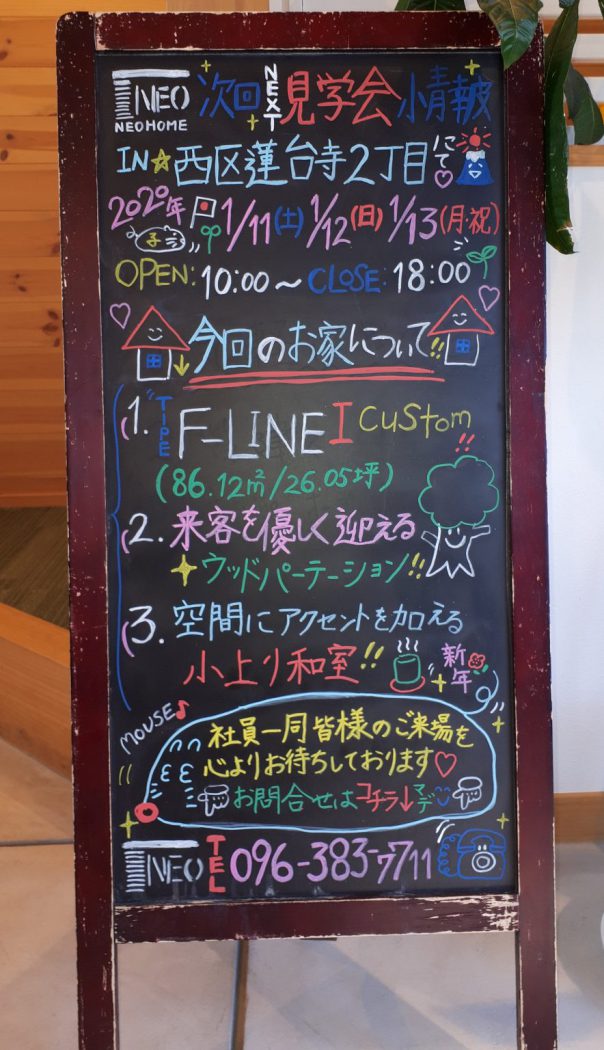 NEO 次回 NEXT 見学会 小青報
NEOHOME
IN☆西区蓮台寺2丁目にて♡
2020年 1/11(土) 1/12(日) 1/13(月・祝)
子
OPEN: 10:00～CLOSE: 18:00
今回のお家について!!
1. TIPE F-LINE I custom!!
(86.12㎡/26.05坪)
2. 来客を優しく迎える
ウッドパーテーション!!
3. 空間にアクセントを加える
小上り和室!!
新年
MOUSE♪
社員一同皆様のご来場を
心よりお待ちしております♡
お問合せはコチラ↓マデ
NEO TEL 096-383-7711